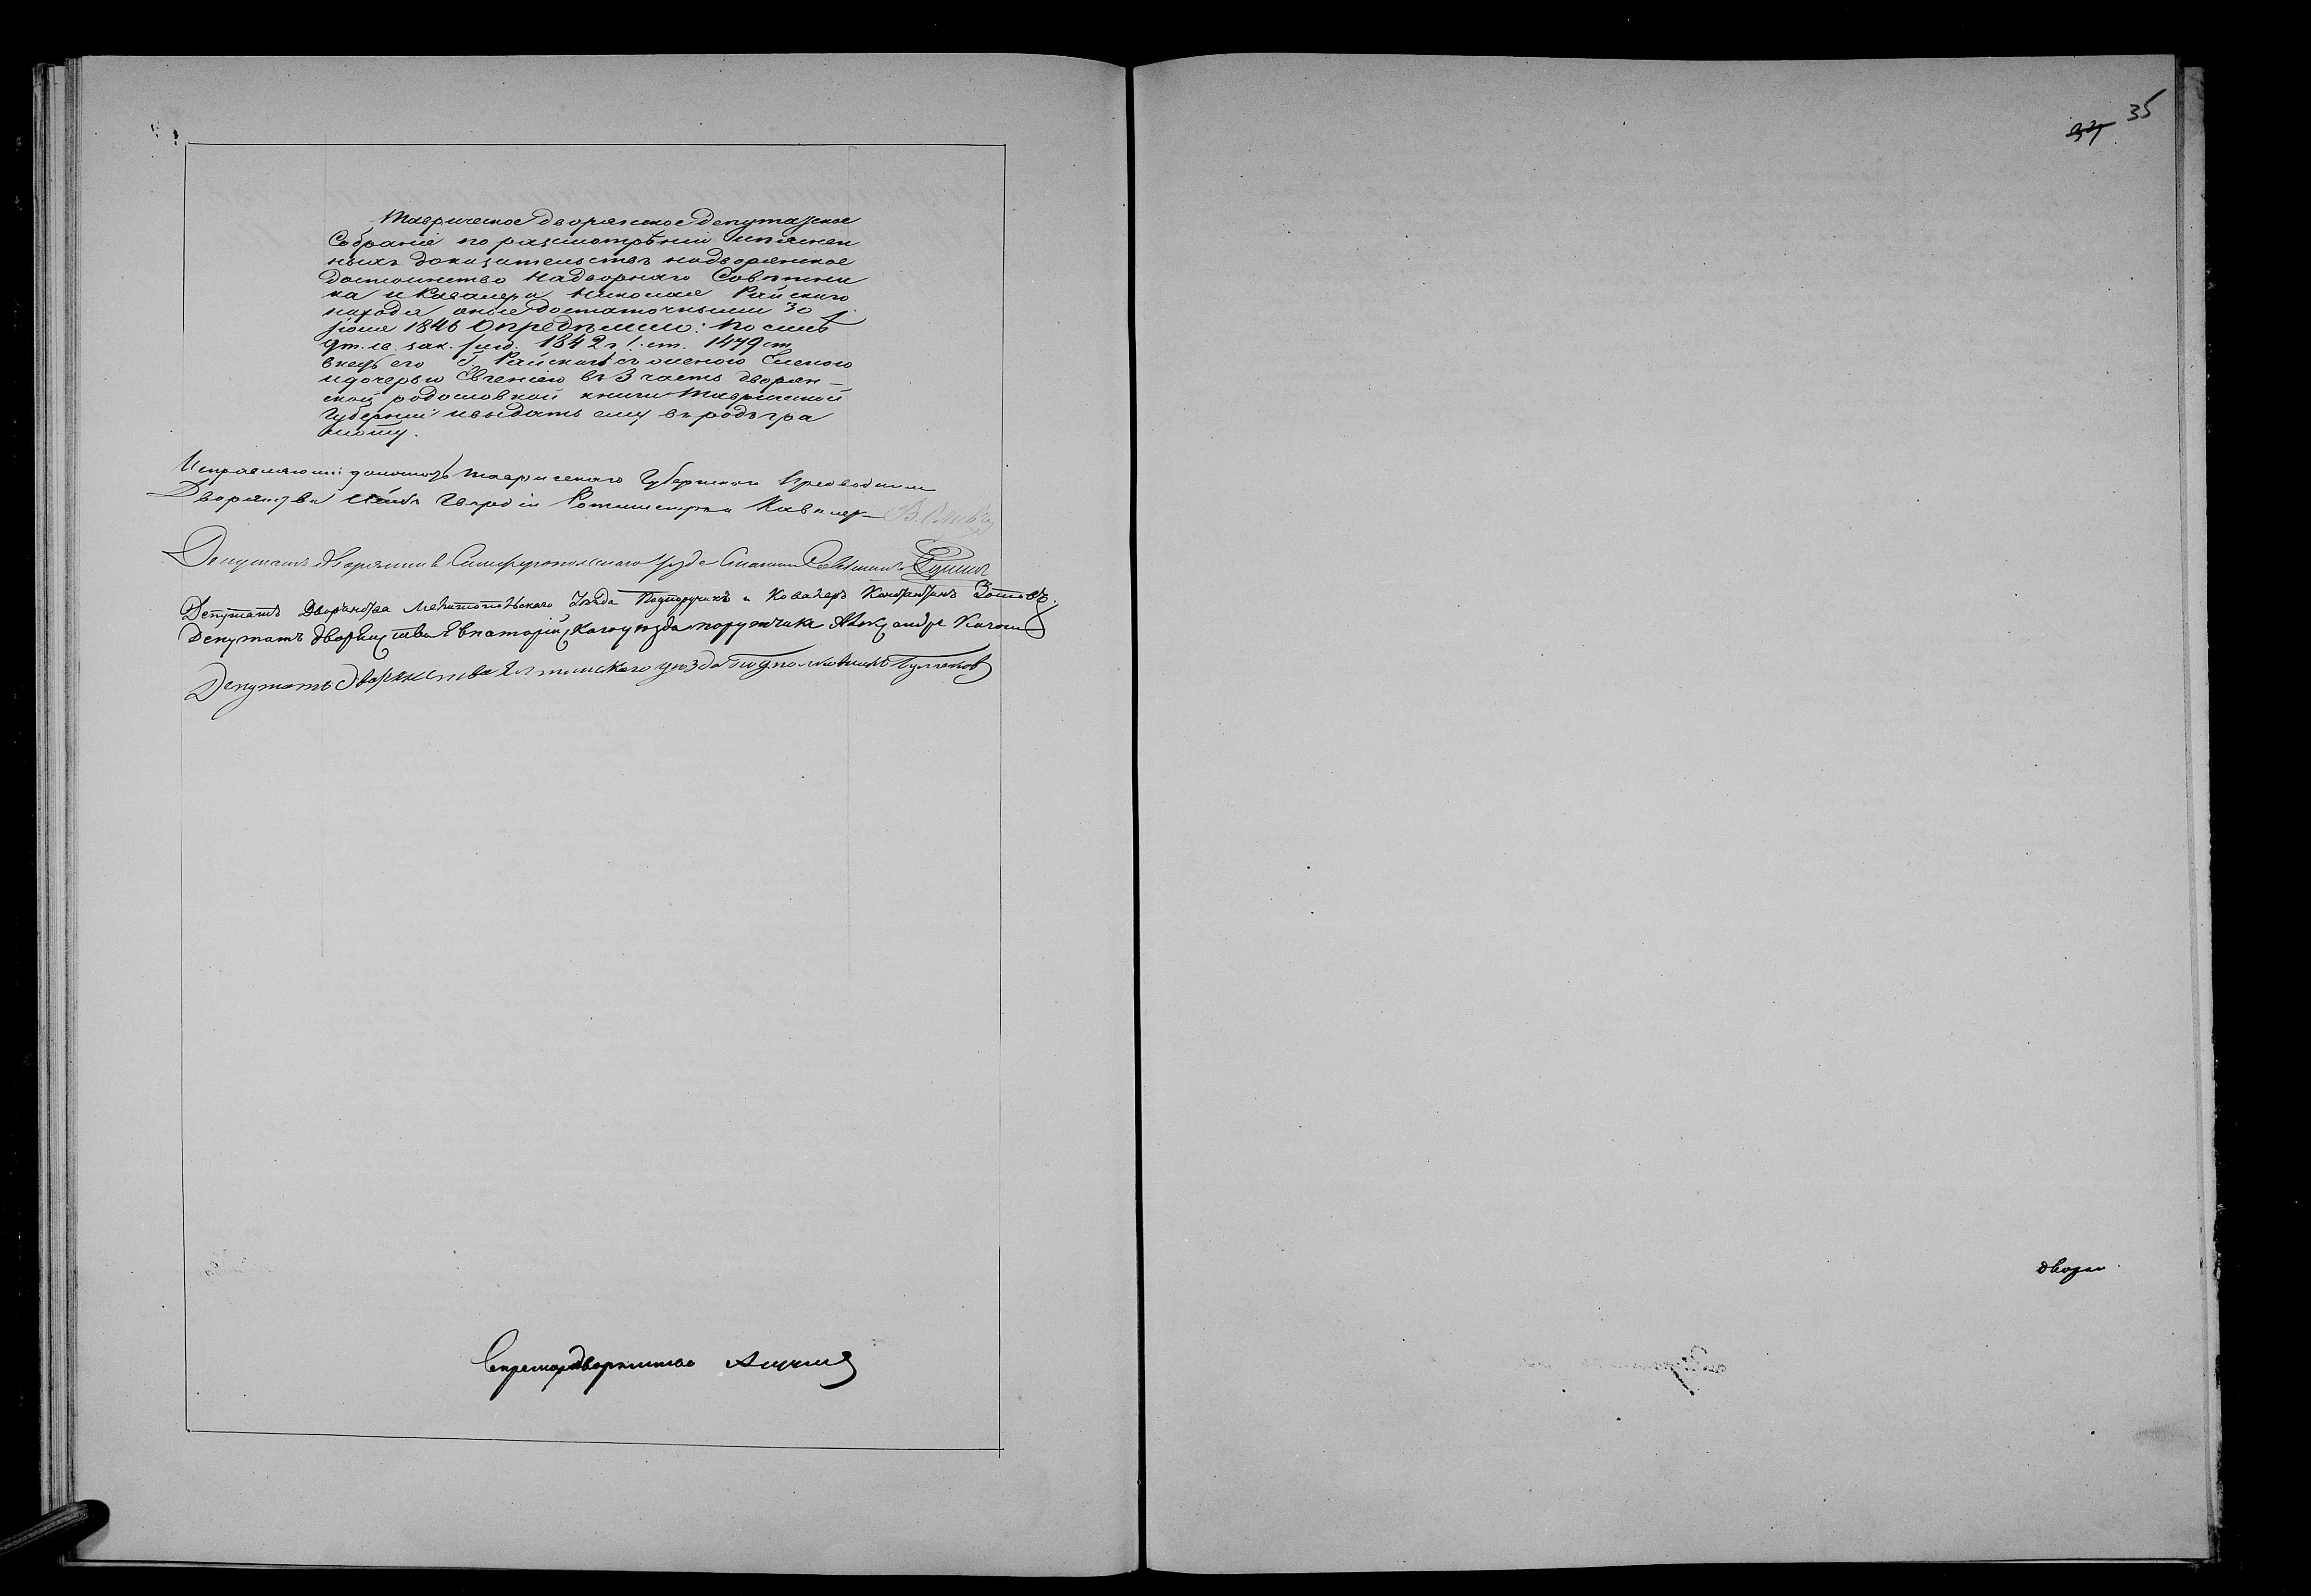 Таврическое дворянское депутатское
Собрание по разсмотрѣнiи изъяснен
ныхъ доказательствъ на дворянское
достоинство Надворнаго Совѣтни
ка и Кавалера Николая Райскаго
находя оные достаточными 30
Iюня 1846 Опредѣлили: по силѣ
9 т. св. зак. изд. 1842 г. ст. 1479
внесть его Г. Райскаго съ женою Еленою
и дочерью Евгенiею въ 3 часть дворян-
ской родословной книги Таврической
Губернiи и выдать ему въ родъ гра
моту.
Исправляющiй должность Таврическаго Губернскаго Предводителя
Дворянства Лейбъ Гвардiи Ротмистръ и Кавалеръ
Депутатъ дворянства Симферопольскаго уѣзда Совѣтникъ
Депутатъ Дворянства Мелитопольскаго Уѣзда Подпоручикъ и Кавалеръ Константинъ Зотовъ.
Депутатъ дворянства Евпаторiйскаго уѣзда поручикъ Александръ
Депутатъ дворянства Ялтинскаго уѣзда подполковникъ
Секретарь дворянства
35
дворян